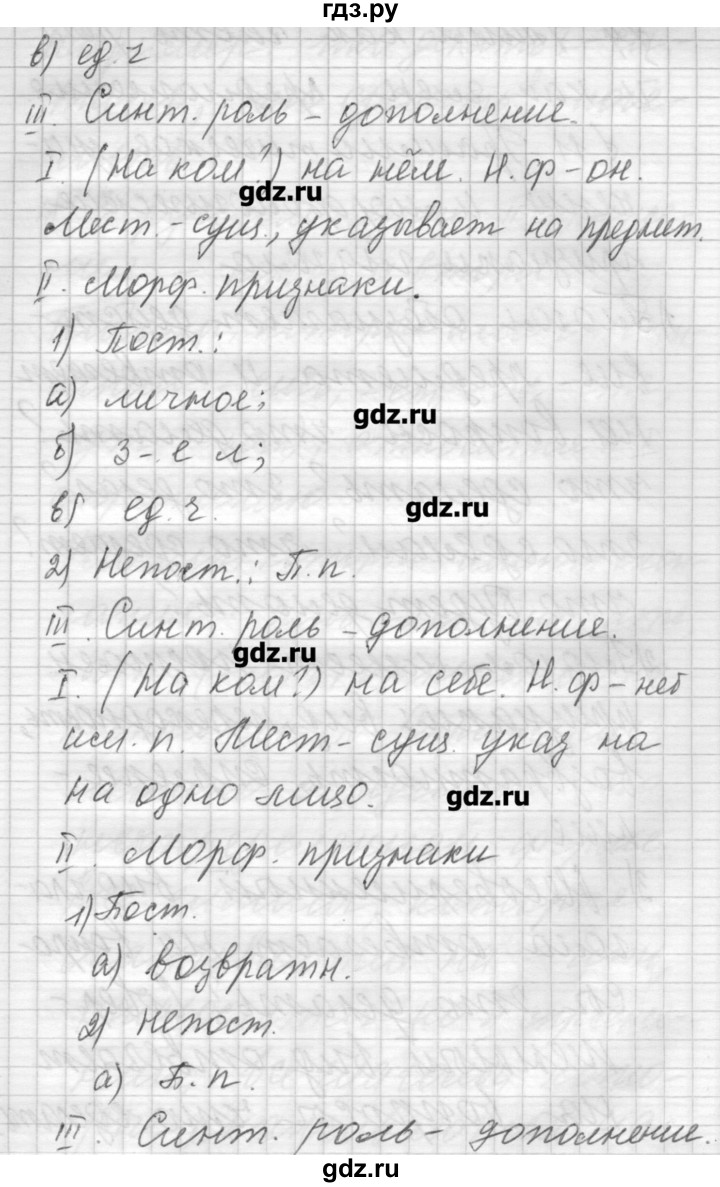 гдз.ру
в) ед. ч
III. Синт. роль – дополнение.
I. (На ком?) на нём. Н. ф – он.
gdz.ru
Мест. – сущ., указывает на предмет.
II. Морф. признаки.
1) Пост.:
а) личное;
gdz.ru
б) 3 – е л;
в) ед. ч.
gdz.ru
2) Непост.: П. п.
III. Синт. роль – дополнение.
gdz.ru
I. (На ком?) на себе. Н. ф – нет
им. п. Мест – сущ. указ на
на одно лицо.
gdz.ru
II. Морф. признаки
1) Пост.
а) возвратн.
2) непост.
а) П. п.
III. Синт. роль – дополнение.
gdz.ru